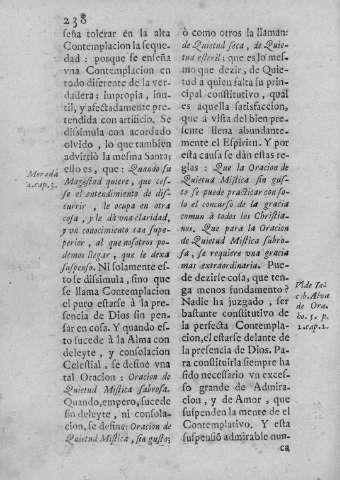 238
seña tolerar en la alta
Contemplacion la seque-
dad: porque se enseña
vna Contemplacion en
todo diferente de la ver-
dadera; impropia, inu-
til, y afectadamente pre-
tendida con artificio. Se
dissimula con acordado
olvido, lo que tambien
advirtiò la mesma Santa;
esto es, que: Quando su
Magestad quiere, que ces-
se el entendimiento de dis-
currir, le ocupa en otra
cosa, y le dà vna claridad,
y vn conocimiento tan supe-
perior, al que nosotros po-
demos llegar, que le dexa
suspenso. Ni solamente es-
to se dissimula, sino que
se llama Contemplacion
el puro estarse à la pre-
sencia de Dios sin pen-
sar en cosa. Y quando es-
to sucede à la Alma con
deleyte, y consolacion
Celestial, se define vna
tal Oracion: Oracion de
Quietud Mistica sabrosa.
Quando, empero, sucede
sin deleyte, ni consola-
cion, se define: Oracion de
Quietud Mistica, sin gusto;
Morada
4.cap.3.
ò como otros la llaman:
de Quietud seca, de Quie-
tud esteril: que es lo mes-
mo que dezir, de Quie-
tud à quien falta su prin-
cipal constitutivo, qual
es aquella satisfaccion,
que à vista del bien pre-
sente llena abundante-
mente el Espiritu. Y por
esta causa se dàn estas re-
glas: Que la Oracion de
Quietud Mistica sin gus-
to se puede practicar con so-
lo el concurso de la gracia
comun à todos los Christia-
nos. Que para la Oracion
de Quietud Mistica sabro-
sa, se requiere una gracia
mas extraordinaria. Pue-
de dezirse cosa, que ten-
ga menos fundamento?
Nadie ha juzgado, ser
bastante constitutivo de
la perfecta Contempla-
cion, el estarse delante de
la presencia de Dios. Pa-
ra constituirla siempre ha
sido necessario vn exces-
so grande de Admira-
cion, y de Amor, que
suspenden la mente de el
Contemplativo. Y esta
suspensiõ admirable nun-
ca
Vide
de Ora-
2.cap.2.